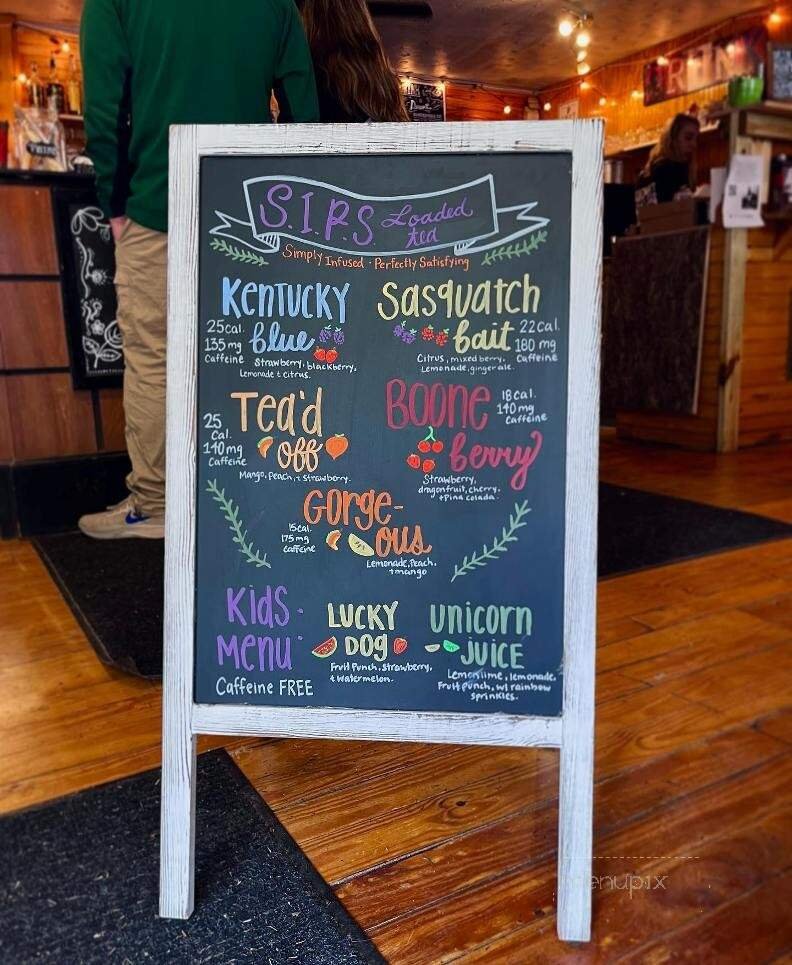 S.I.P.S. Loaded
tea
Simply Infused · Perfectly Satisfying
Kentucky
blue
25cal.
135 mg
Caffeine
Strawberry, blackberry,
Lemonade + citrus.
Sasquatch
bait
22 cal.
180 mg
Caffeine
Citrus, mixed berry,
Lemonade, ginger ale.
Tea'd
off
25
Cal.
140mg
Caffeine
Mango, Peach, + Strawberry.
Boone
berry
18 cal.
140 mg
Caffeine
Strawberry,
dragonfruit, cherry,
+ Pina colada.
Gorge-
ous
15cal.
175 mg
Caffeine
Lemonade, Peach,
+ mango
Kids
Menu
Caffeine FREE
Lucky
Dog
Fruit Punch, Strawberry,
+ Watermelon.
Unicorn
Juice
Lemon lime, lemonade,
Fruit Punch, w/ rainbow
Sprinkles.
menupix